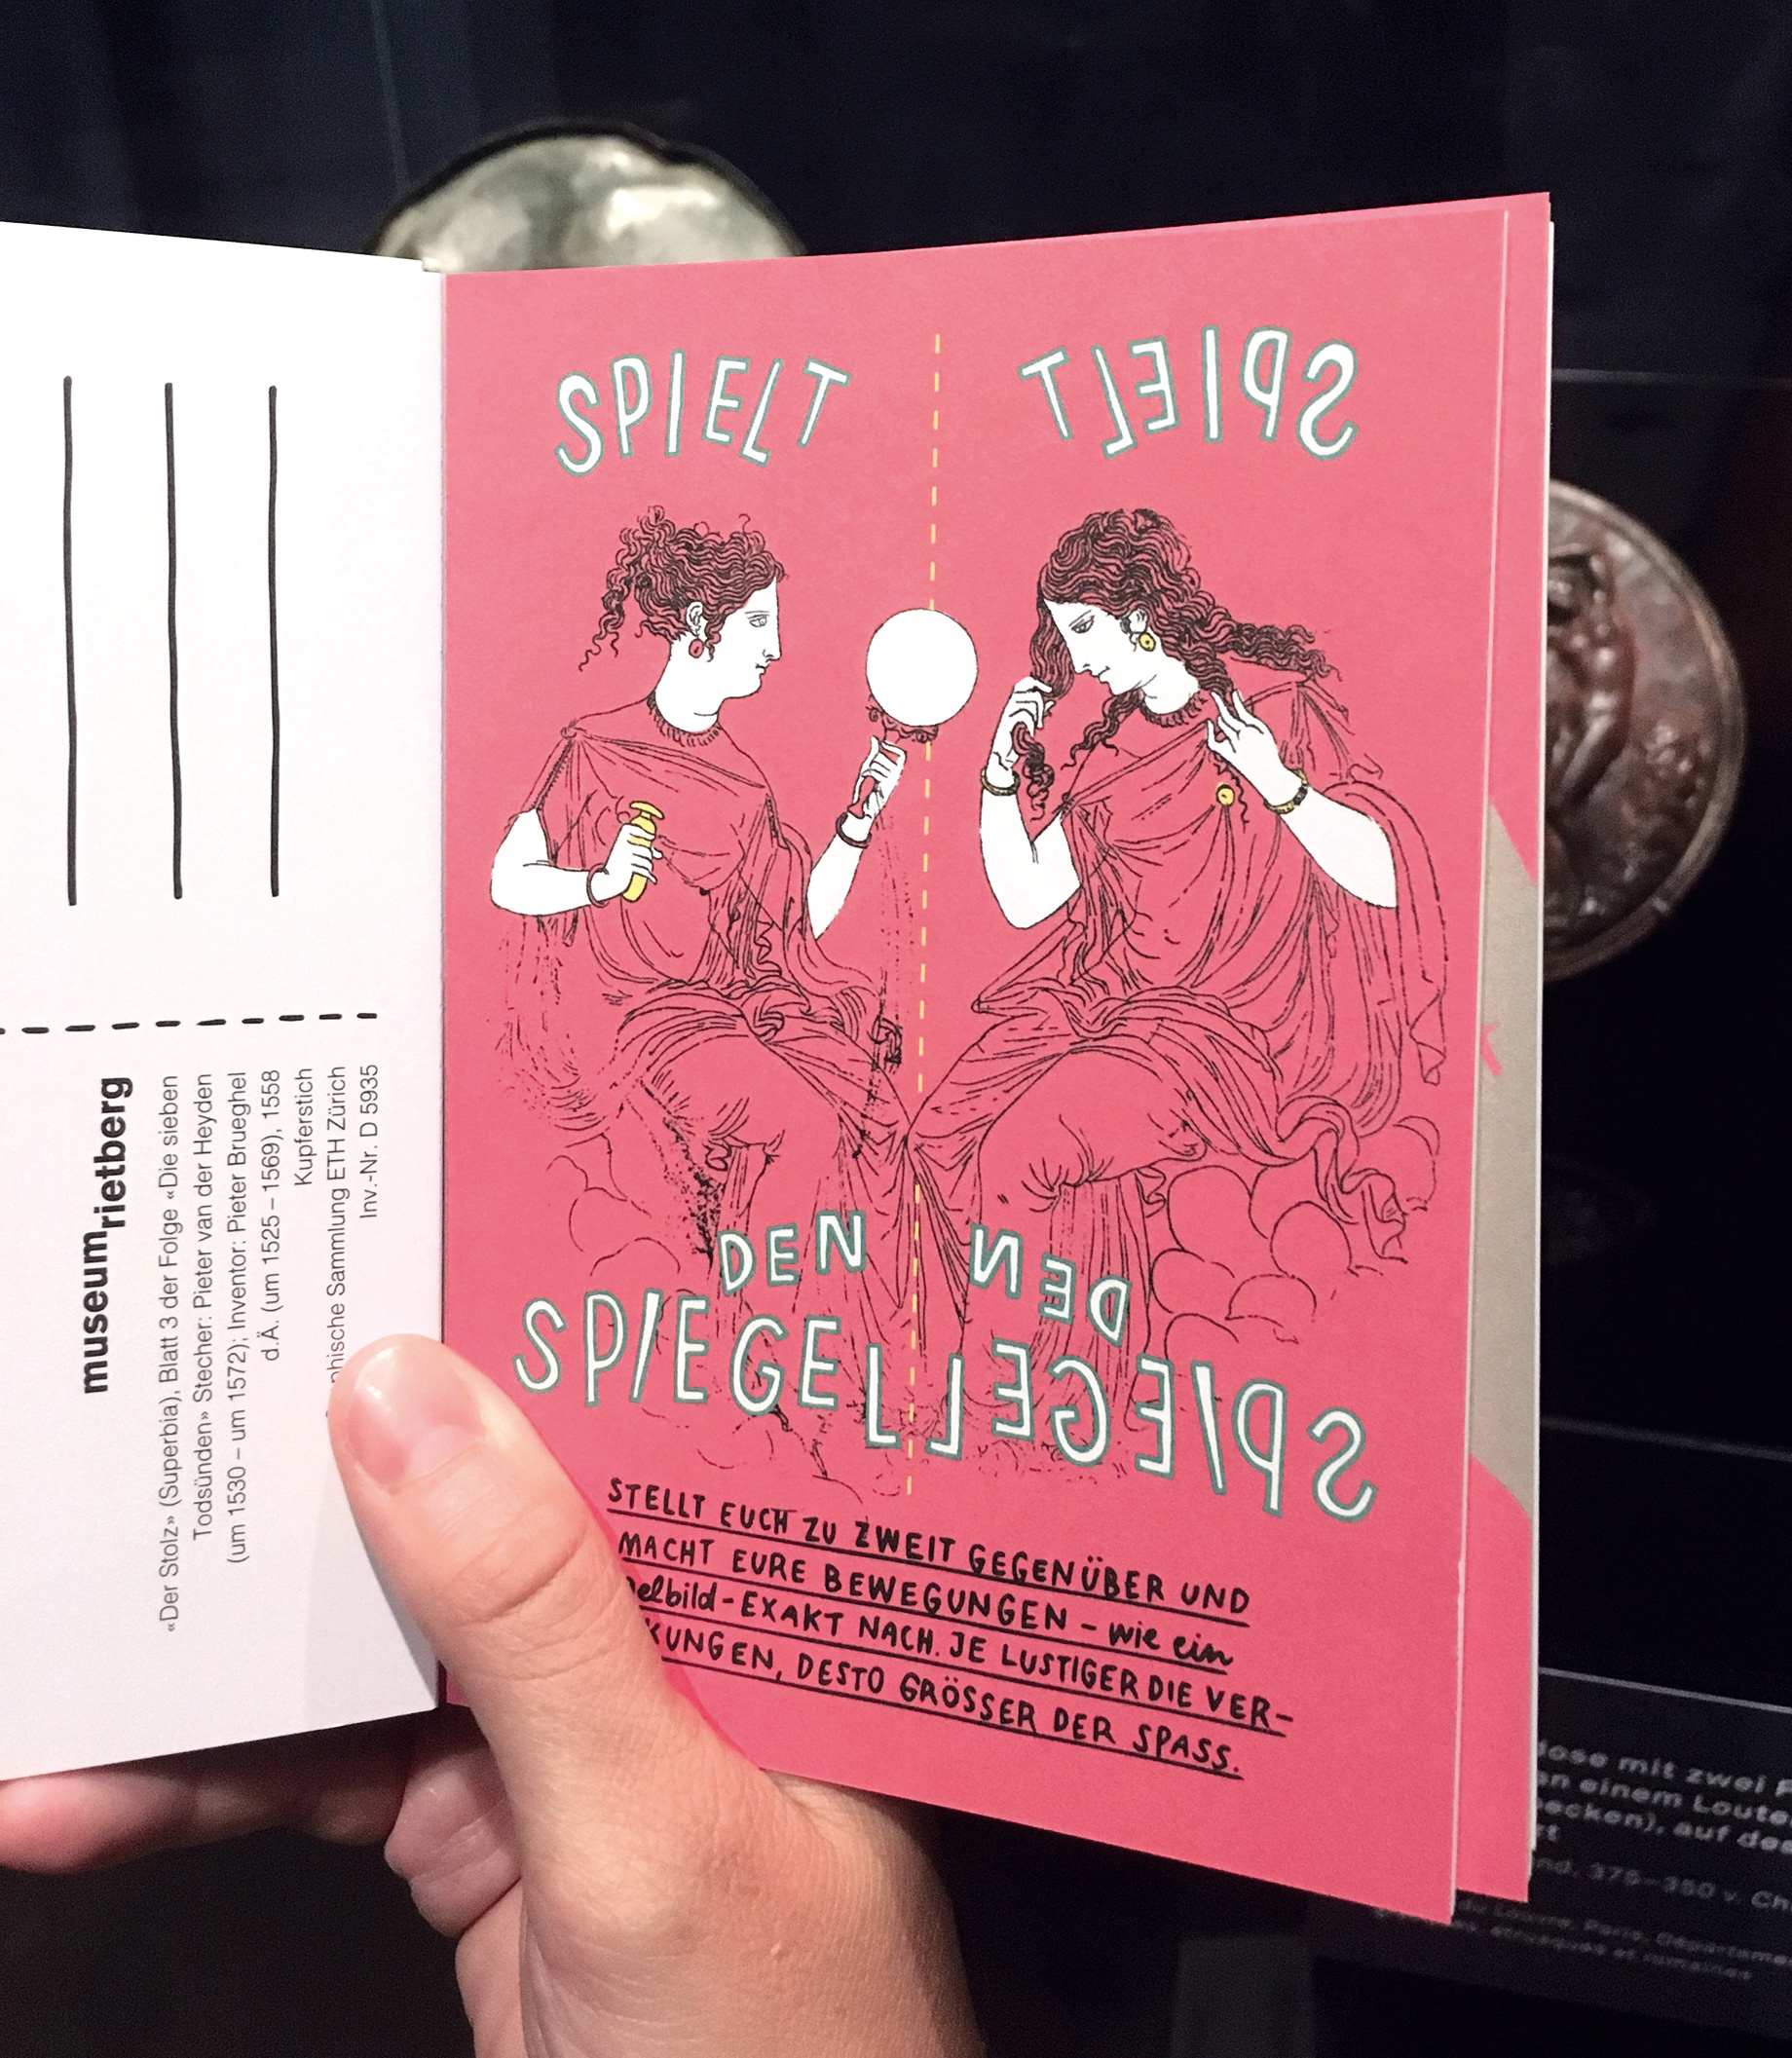 SPIELT SPIELT
DEN DEN
SPIEGEL SPIEGEL
STELLT EUCH ZU ZWEIT GEGENÜBER UND
MACHT EURE BEWEGUNGEN – wie ein
elbild – EXAKT NACH. JE LUSTIGER DIE VER-
KUNGEN, DESTO GRÖSSER DER SPASS.
museumrietberg
«Der Stolz» (Superbia), Blatt 3 der Folge «Die sieben
Todsünden» Stecher: Pieter van der Heyden
(um 1530 – um 1572); Inventor: Pieter Brueghel
d.Ä. (um 1525 – 1569), 1558
Kupferstich
hische Sammlung ETH Zürich
Inv.-Nr. D 5935
dose mit zwei
an einem Loute
ecken), auf de
nd, 375–350 v. Ch
du Louvre, Paris, Départeme
étrusques et romaines